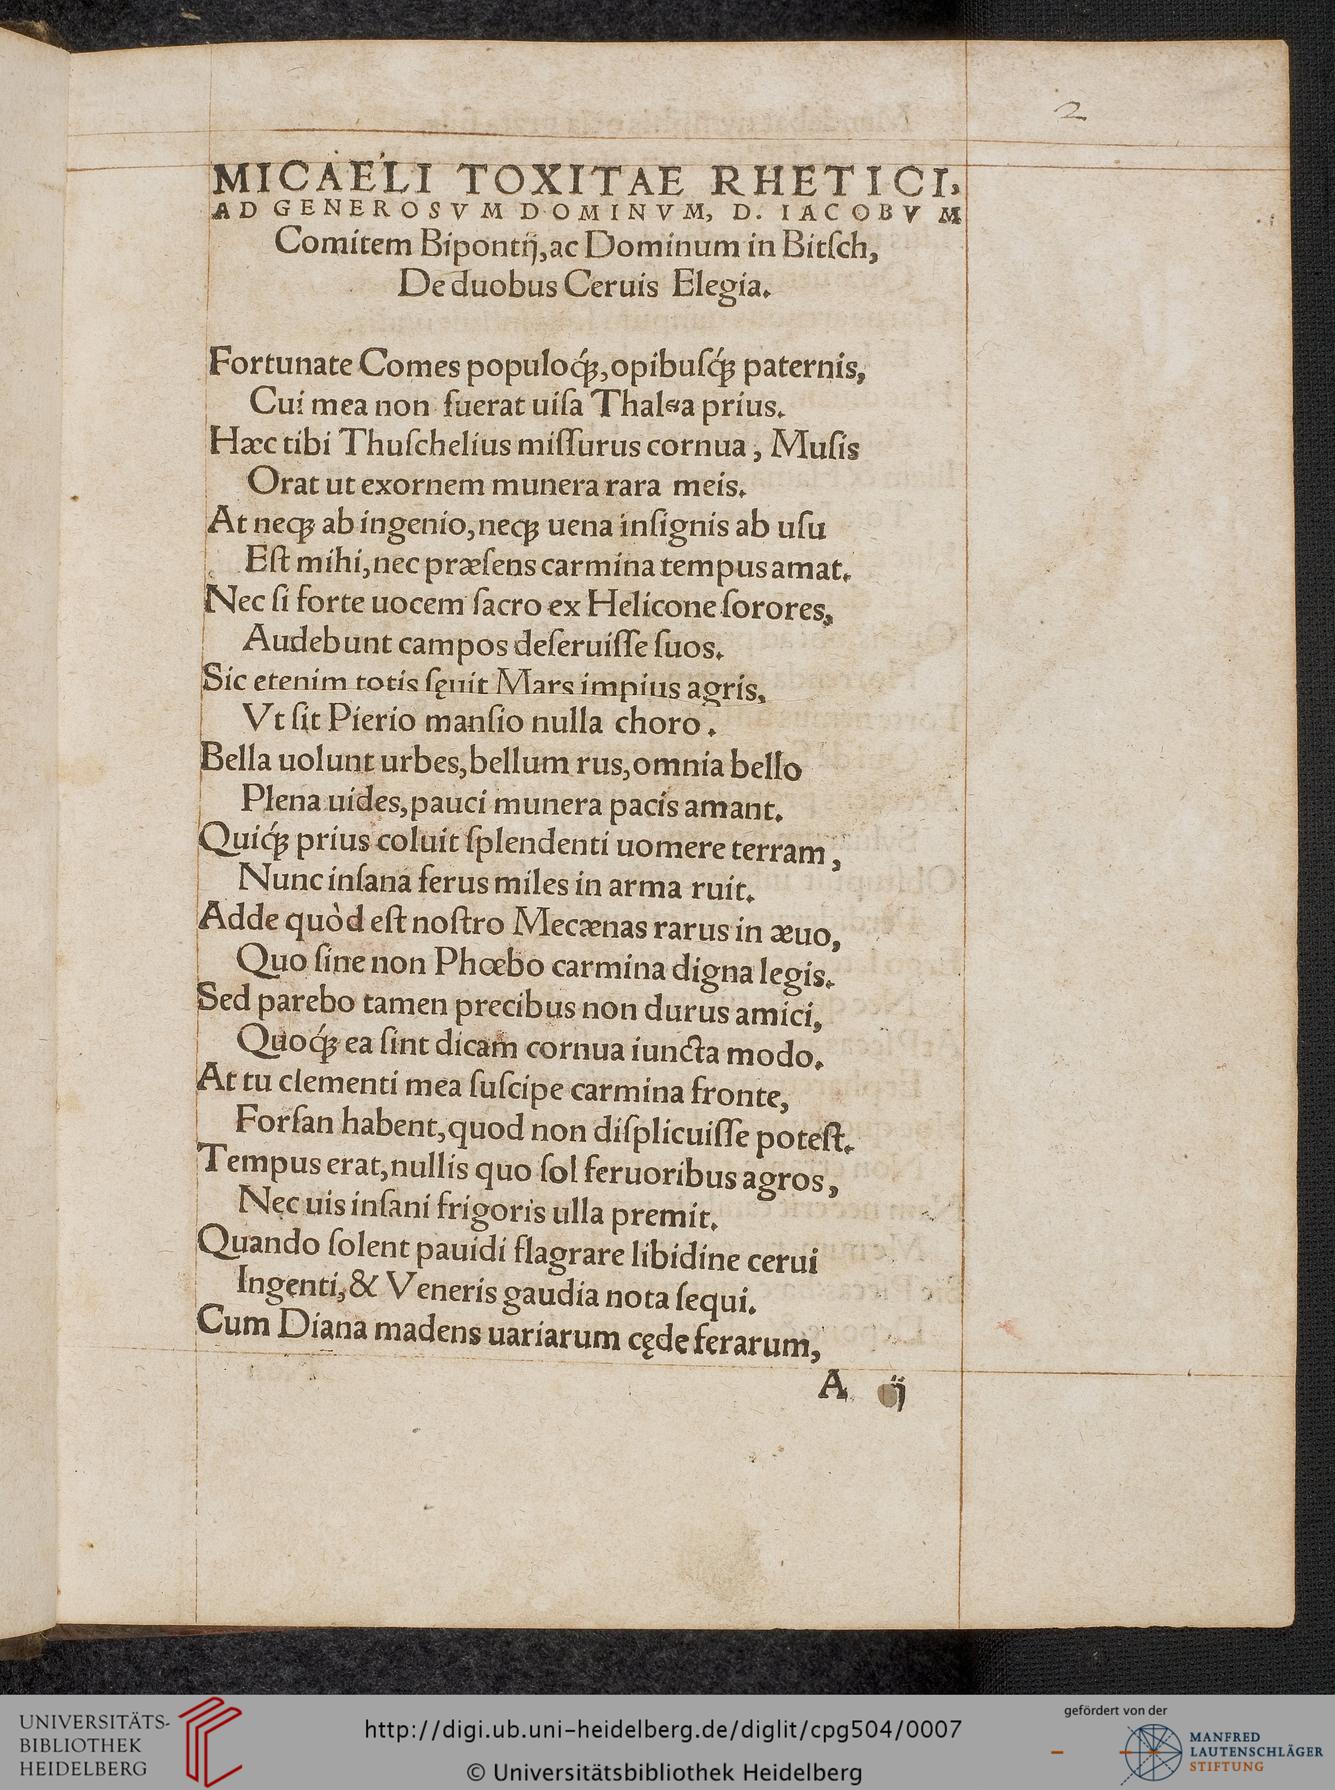 2
MICAELI TOXITAE RHETICI,
AD GENEROSVM DOMINVM, D. IACOBVM
Comitem Bipontij, ac Dominum in Bitſch,
De duobus Ceruis Elegia.
Fortunate Comes populoq́ꝫ, opibuſq́ꝫ paternis,
Cui mea non fuerat uiſa Thalea prius.
Hæc tibi Thuſchelius miſſurus cornua, Muſis
Orat ut exornem munera rara meis.
At neqꝫ ab ingenio, neqꝫ uena inſignis ab uſu
Eſt mihi, nec præſens carmina tempus amat.
Nec ſi forte uocem ſacro ex Helicone ſorores,
Audebunt campos deſeruiſſe ſuos.
Sic etenim totis ſęuit Mars impius agris,
Vt ſit Pierio manſio nulla choro.
Bella uolunt urbes, bellum rus, omnia bello
Plena uides, pauci munera pacis amant.
Quiq́ꝫ prius coluit ſplendenti uomere terram,
Nunc inſana ferus miles in arma ruit.
Adde quòd eſt noſtro Mecænas rarus in æuo,
Quo ſine non Phœbo carmina digna legis.
Sed parebo tamen precibus non durus amici,
Quoq́ꝫ ea ſint dicam cornua iuncta modo.
At tu clementi mea ſuſcipe carmina fronte,
Forſan habent, quod non diſplicuiſſe poteſt.
Tempus erat, nullis quo ſol feruoribus agros,
Nec uis inſani frigoris ulla premit.
Quando ſolent pauidi flagrare libidine cerui
Ingenti, & Veneris gaudia nota ſequi.
Cum Diana madens uariarum cęde ferarum,
A ij
UNIVERSITÄTS-
BIBLIOTHEK
HEIDELBERG
http://digi.ub.uni-heidelberg.de/diglit/cpg504/0007
© Universitätsbibliothek Heidelberg
gefördert von der
MANFRED
LAUTENSCHLÄGER
STIFTUNG